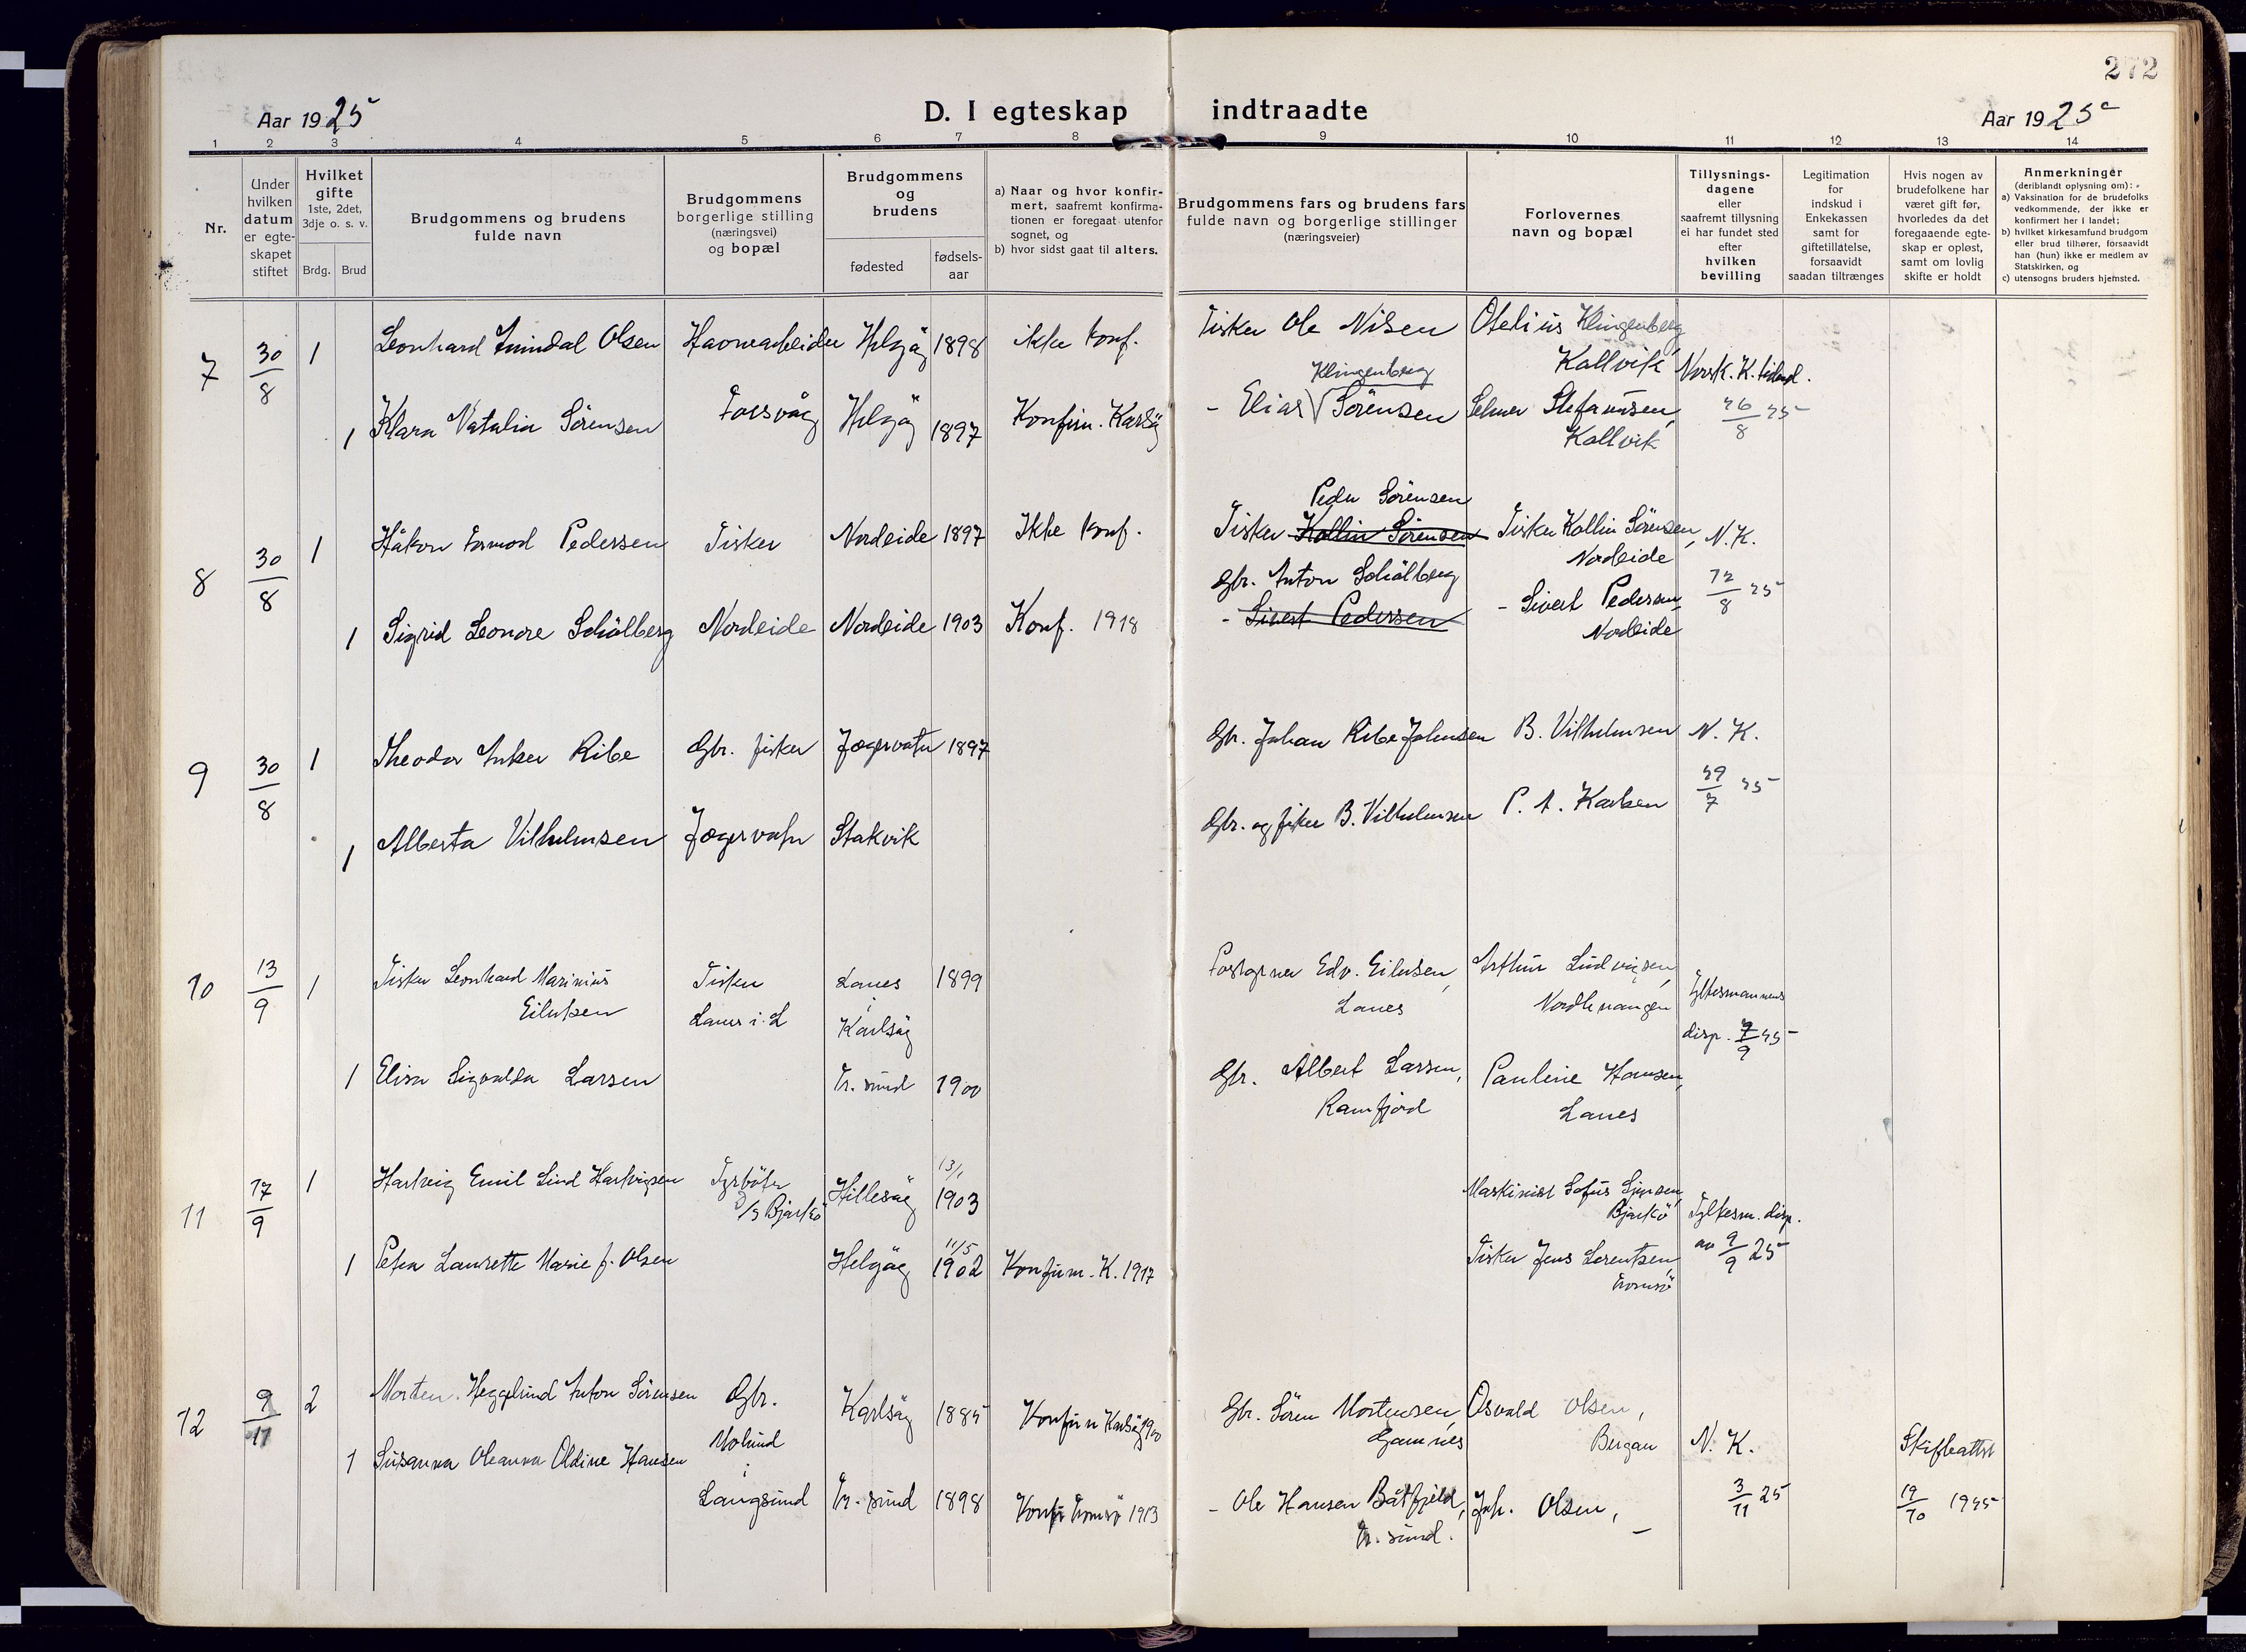 272
Aar 1925
D. I egteskap indtraadte
Aar 1925
1 2 3 4 5 6 7 8 9 10 11 12 13 14
Nr.
Under
hvilken
datum
er egte-
skapet
stiftet
Hvilket
gifte
1ste, 2det,
3dje o. s. v.
Brdg. Brud
Brudgommens og brudens
fulde navn
Brudgommens
borgerlige stilling
(næringsvei)
og bopæl
Brudgommens
og
brudens
fødested
fødsels-
aar
a) Naar og hvor konfir-
mert, saafremt konfirma-
tionen er foregaat utenfor
sognet, og
b) hvor sidst gaat til alters.
Brudgommens fars og brudens fars
fulde navn og borgerlige stillinger
(næringsveier)
Forlovernes
navn og bopæl
Tillysnings-
dagene
eller
saafremt tillysning
ei har fundet sted
efter
hvilken
bevilling
Legitimation
for
indskud i
Enkekassen
samt for
giftetillatelse,
forsaavidt
saadan tiltrænges
Hvis nogen av
brudefolkene har
været gift før,
hvorledes da det
foregaaende egte-
skap er opløst,
samt om lovlig
skifte er holdt
Anmerkninger
(deriblandt oplysning om):
a) Vaksination for de brudefolks
vedkommende, der ikke er
konfirmert her i landet;
b) hvilket kirkesamfund brudgom
eller brud tilhører, forsaavidt
han (hun) ikke er medlem av
Statskirken, og
c) utensogns bruders hjemsted.
7 30/8 1 Leonhard Olsen Havnearbeider Helgøy 1898 ikke konf. Fisker Ole Nilsen Otelius Klingenberg
Kallvik Norsk. K.
Klingenberg
1 Klara Natalia Sørensen Torsvåg Helgøy 1897 Konfirm. Karlsøy - Elias Sørensen Selmer Stefanusen, 26/8 25
Kallvik
Peder Sørensen
8 30/8 1 Håkon Pedersen Fisker Nordeide 1897 Ikke konf. Fisker Kollin Sørensen Fisker Kollin Sørensen, N. K.
Nordeide
Gbr. Anton Schølberg 12/8 25
1 Sigrid Leonore Schølberg Nordeide Nordeide 1903 Konf. 1918 - Sivert Pedersen - Sivert Pedersen,
Nordeide
9 30/8 1 Theodor Anker Ribe Gbr. fisker Jægervatn 1897 Gbr. Johan Ribe Johnsen B. Vilhelmsen N. K.
29/7 25
1 Alberta Vilhelmsen Jægervatn Stakvik Gbr. og fisker B. Vilhelmsen P. A. Karlsen
10 13/9 1 Fisker Leonhard Marinius Fisker Lanes 1899 Edv. Eilertsen, Arthur Ludvigsen,
Eilertsen Lanes i. L i Karlsøy Lanes Nordlenangen Fylkesmannens
disp. 7/9 25
1 Elisa Sigvalda Larsen Tr. sund 1900 Gbr. Albert Larsen, Pauline Hansen,
Ramfjord Lanes
11 17/9 1 Hartvig Emil Lind Hartvigsen Fyrbøter Hillesøy 13/1 1903 Maskinist Sofus
D/S Bjarkø Bjarkø Fylkesm. disp.
av 9/9 25
1 Petra Laurette Marie f. Olsen Helgøy 11/5 1902 Konfirm. K. 1917 Fisker Jens Lorentsen,
Tromsø
12 9/11 2 Morten Hegglund Anton Sørensen Gbr. Karlsøy 1885 Konfirm Karlsøy 1900 Gbr. Sören Mortensen, Osvald Olsen,
Molund Gamnes Bergan N. K. Skifteattst
1 Susanna Oleanna Oldine Hansen
i
Langsund Tr. sund 1898 Konf. Tromsø 1913 - Ole Hansen Båtfjeld, Joh. Olsen, - 3/11 25 19/10 1925
Tr. sund.